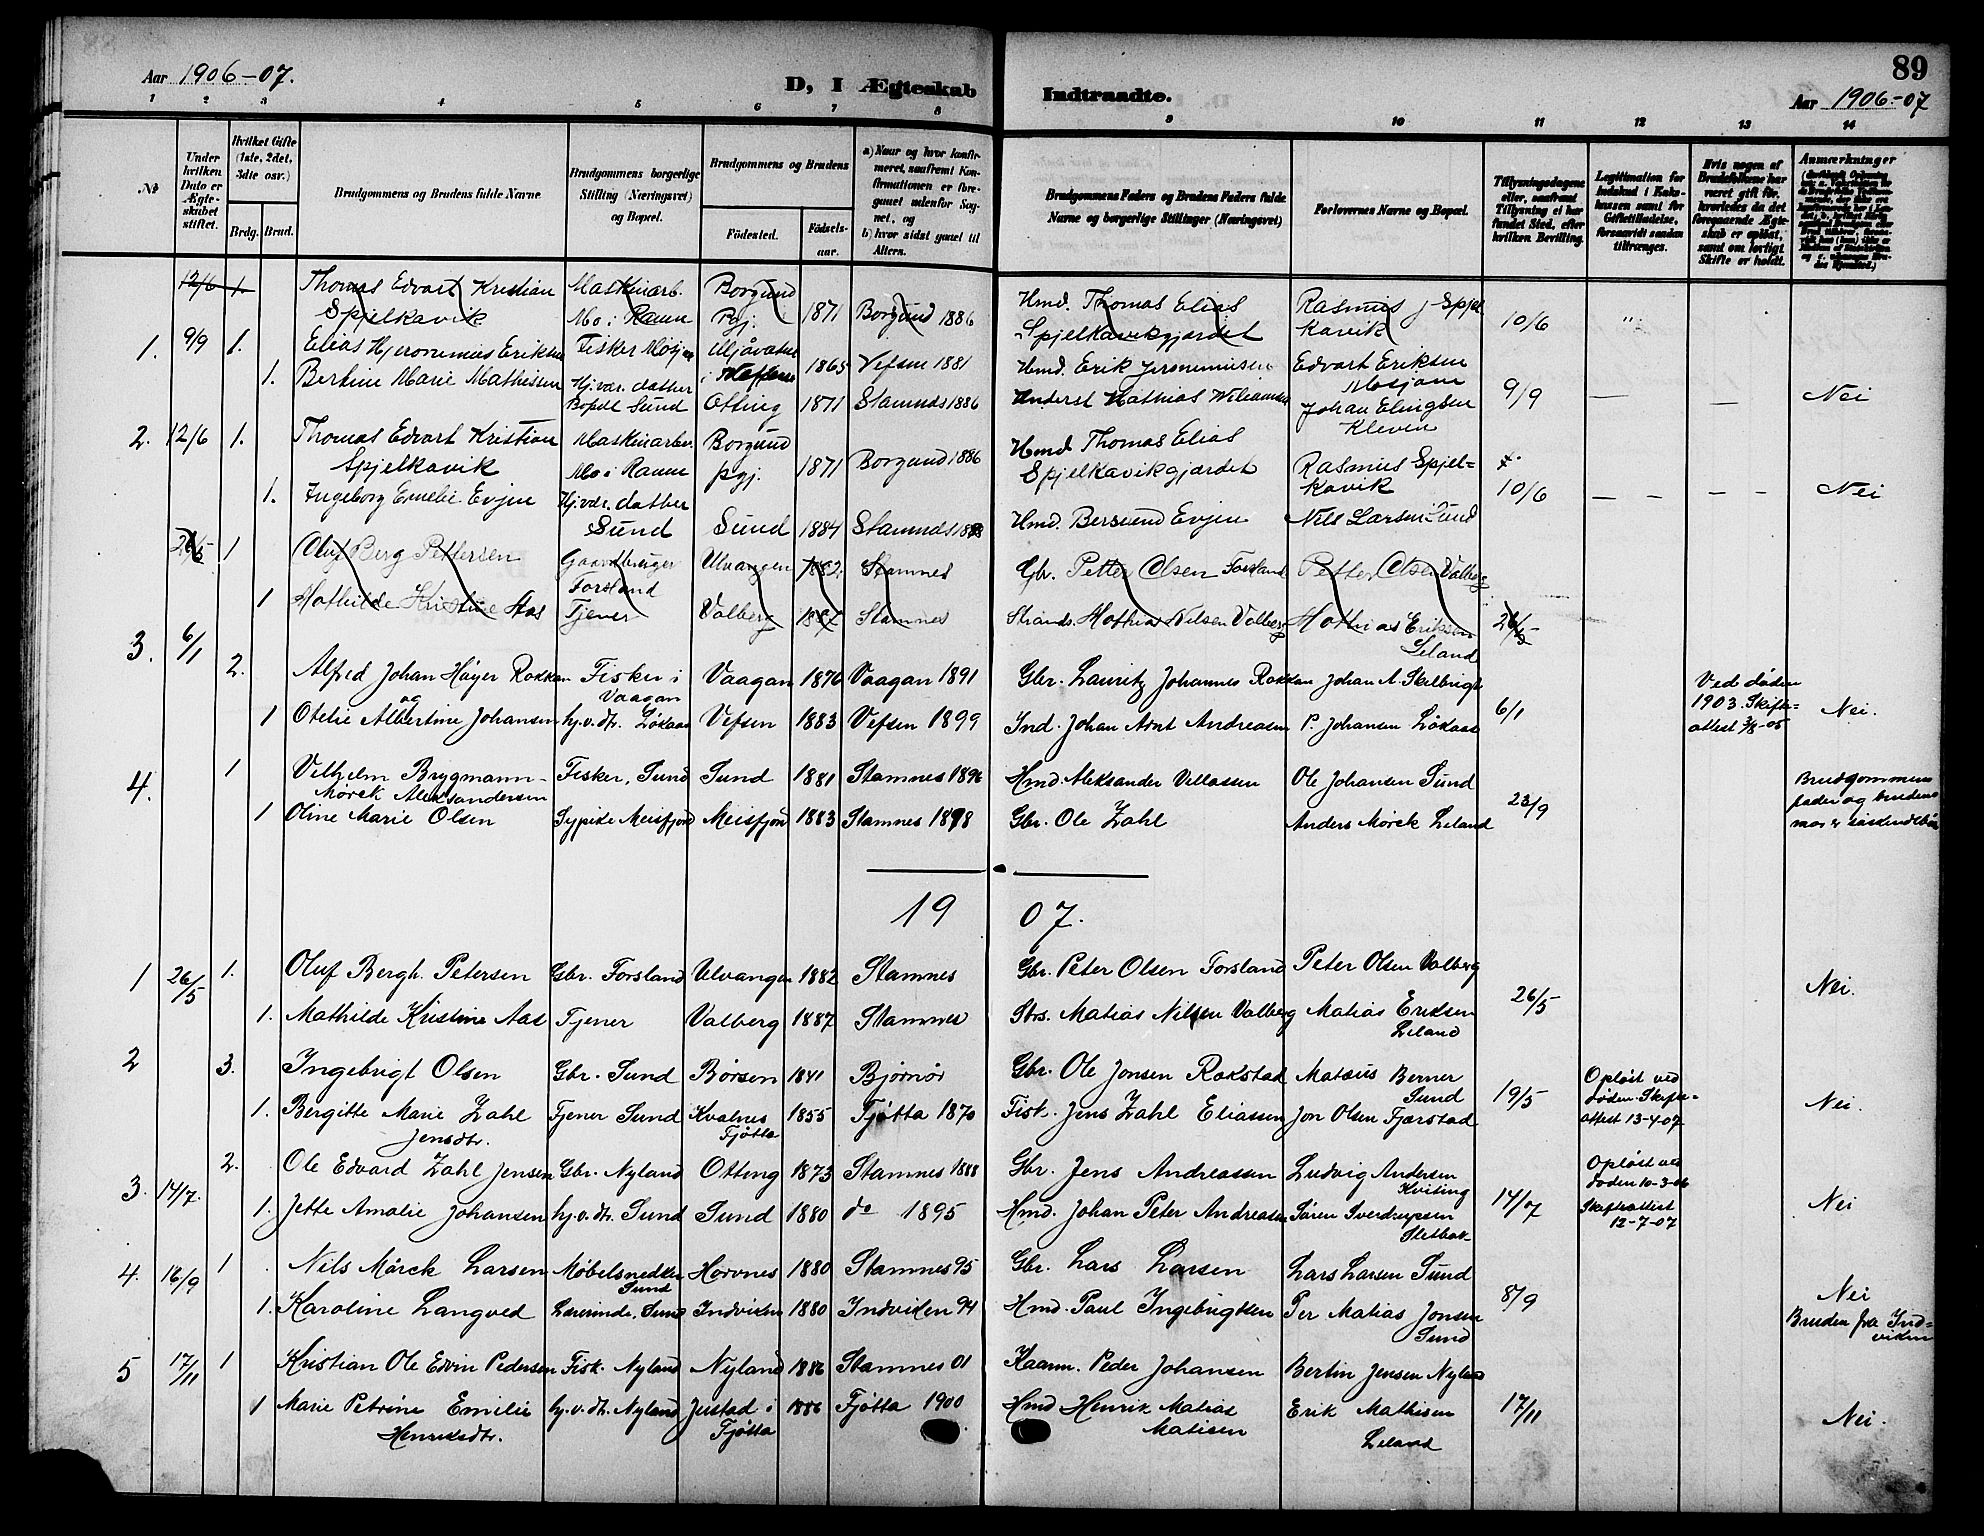 89
Aar 1906-07.
D, I Ægteskab Indtraadte.
Aar 1906-07
1 2 3 4 5 6 7 8 9 10 11 12 13 14
No
Under hvilken Dato er Ægteskabet stiftet.
Hvilket Gifte (1ste, 2det, 3die osv.)
Brdg. Brud.
Brudgommens og Brudens fulde Navne
Brudgommens borgerlige Stilling (Næringsvei) og Bopæl.
Brudgommens og Brudens
Fødested.
Fødselsaar.
a) Naar og hvor konfirmeret, saafremt Konfirmationen er foregaaet udenfor Sognet, og
b) hvor sidst gaaet til Alters.
Brudgommens Faders og Brudens Faders fulde Navne og borgerlige Stillinger (Næringsvei)
Forlovernes Navne og Bopæl.
Tillysningsdagene eller, saafremt Tillysning ei har fundet Sted, efter hvilken Bevilling.
Legitimation for Indskud i Enkekassen samt for Giftetilladelse, forsaavidt saadan tiltrænges.
Hvis nogen af Brudefolkene har været gift før, hvorledes da det foregaaende Ægteskab er opløst, samt om lovligt Skifte er holdt.
Anmærkninger
12/6 1. Thomas Edvart Kristian Maskinarb. Borgund Hmd. Thomas Elias Rasmus J Spjel
Spjelkavik Mo i Ranen Pgj. 1871 Borgund 1886 Spjelkavikgjærdet kavik 10/6 "
1. 9/9 1. Elias Hjeronimus Eriksen Fisker Mosjøen 1865 Vefsen 1881 Hmd. Erik Jeronimusen Edvart Eriksen
Mosjøen
1. Bertine Marie Mathisen Hj.vær. datter Otting 1871 Stamnes 1886 Mathias Johan Elingsen 9/9 — — Nei
Bopæl Sund Kleven
2. 12/6 1. Thomas Edvart Kristian Maskinarb. Borgund Hmd. Thomas Elias
Spjelkavik Mo i Ranen pgj. 1871 Borgund 1886 Spjelkavikgjærdet Rasmus Spjel=
kavik 10/6 — — — — Nei
1. Ingeborg Emelie Evjen Hj.vær. datter
Sund Sund 1884 Stamnes Hmd. Bersvend Evjen Nils Larsen Sund
26/5 1 Oluf Berg Pettersen Gaardbruger Ulvangen 1882. Stamnes Gbr. Petter Olsen Forsland Petter Olsen Valberg
Forsland
1 Mathilde Kristine Aas Tjener Valberg 1887 Stamnes Strands. Mathias Nilsen Valberg Mathias Eriksen 26/5
Leland
3. 6/1 2. Alfred Johan Høyer Rokkan Fisker i Vaagan 1876 Vaagan 1891 Gbr. Lauritz Johannes Rokkan Johan A. Skelbrigt Ved døden
og Vaagan 1903. Skifte=
1 Otelie Albertine Johansen hj.v.dtr. Løkaas Vefsen 1883 Vefsen 1899 Ind. Johan Arnt Andreasen P. Johansen Løkaas 6/1 attest 3/8-05 Nei.
4. 1 Vilhelm Brygmann- Fisker, Sund Sund 1881 Stamnes 1896 Hmd. Aleksander Villassen Ole Johansen Sund Brudgommens
Mørck Aleksandersen 23/9 fader og brudens
1 Oline Marie Olsen Sypike Meisfjord Meisfjord 1883 Stamnes 1898 Gbr. Ole Zahl Anders Mørck Leland mor er søskendebørn
1907.
1 26/5 1. Oluf Bergh. Petersen Gbr. Forsland Ulvangen 1882 Stamnes Gbr. Peter Olsen Forsland Peter Olsen Valberg Nei.
1. Mathilde Kristine Aas Tjener Valberg 1887 Stamnes Strs. Matias Nilsen Valberg Matias Eriksen 26/5
Leland
2 3. Ingebrigt Olsen Gbr. Sund Børsen 1841 Bjørnør Gbr. Ole Jonsen Rokstad Matæus Berner Opløst ved
Sund 19/5 døden. Skifte=
1. Bergitte Marie Zahl Tjener Sund Kvalnes 1855 Tjøtta 1870 Fisk. Jens Zahl Eliassen Jon Olsen Fjærstad attest 13-4-07 Nei.
Jensdtr. Tjøtta
3. 14/7. 2. Ole Edvard Zahl Jensen Gbr. Nyland Otting 1873 Stamnes 1888 Gbr. Jens Andreassen Ludvig Andersen Opløst ved
Kviting 14/07 døden 10-3-06
1. Jette Amalie Johansen hj.v.dtr. Sund Sund 1880 do 1895 Hmd. Johan Peter Andreasen Søren Sverdrupsen Skifteattest Nei
Sletbak 12-7-07
4. 1 Nils Mørck Larsen Møbelsnedker Hovnes 1880 Stamnes 95 Gbr. Lars Larsen Lars Larsen Sund
Sund
1. Karoline Langved Lærerinde, Sund Indviken 1880 Indviken 94 Hmd. Paul Ingebrigtsen Per Matias Jonsen 8/9 Nei
Sund Bruden fra Ind=
viken
5 17/11 1 Kristian Ole Edvin Pedersen Fisk. Nyland Nyland 1886 Stamnes 01 Kaarm. Peder Johansen Bertin Jensen Nyland
1 Marie Petrine Emilie hj.v.dtr. Nyland Justad i 1886 Tjøtta 1900 Hmd Henrik Matias Erik Mathisen 17/11 Nei.
Henriksdtr. Tjøtta Matisen Leland